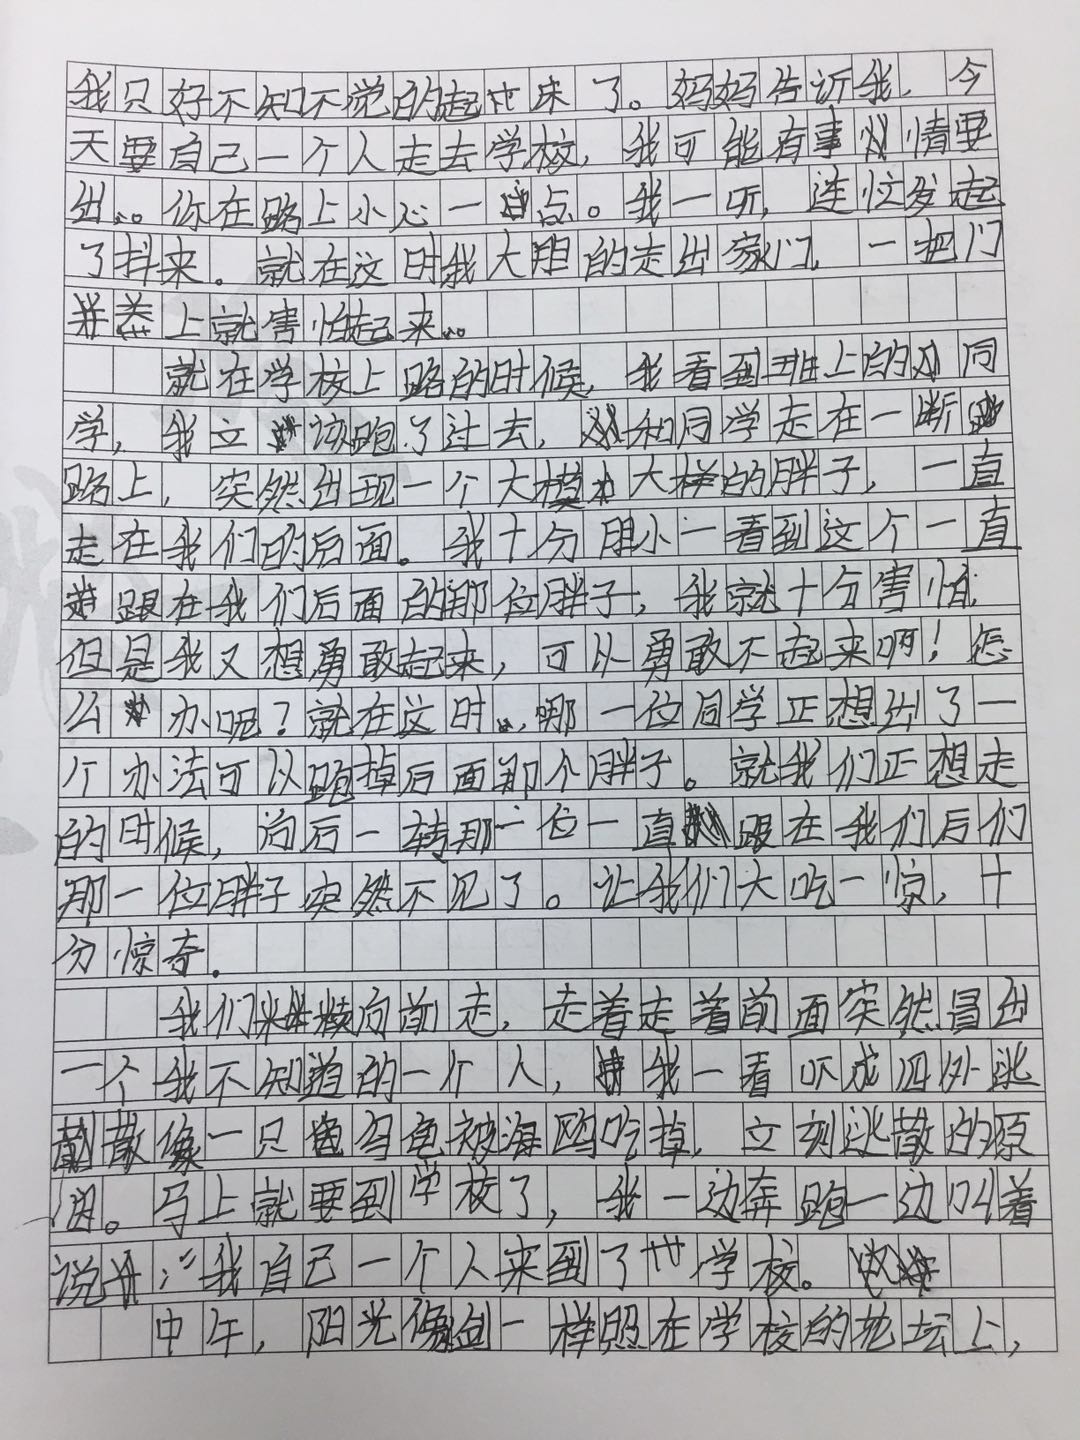 我只好不知不觉的起床了。妈妈告诉我，今
天要自己一个人走去学校，我可能有事情要
出..。你在路上小心一点。我一听，连忙发起
了抖来。就在这时我大胆的走出家门，一把门
关上就害怕起来...
就在学校上路的时候，我看到班上的同
学，我立该跑了过去，和同学走在一断
路上，突然出现一个大模大样的胖子，一直
走在我们的后面。我十分胆小一看到这个一直
跟在我们后面的那位胖子，我就十分害怕
但是我又想勇敢起来，可以勇敢不起来啊！怎
么办呢？就在这时..，那一位同学正想出了一
个办法可以跑掉后面那个胖子。就我们正想走
的时候，向后一转那一位一直跟在我们后们
那一位胖子突然不见了。让我们大吃一惊，十
分惊奇.
我们续向前走，走着走着前面突然冒出
一个我不知道的一个人，我一看吓成四外逃
散像一只乌龟被海鸥吃掉，立刻逃散的原
因。马上就要到学校了，我一边奔跑一边叫着
说："我自己一个人来到了学校。
中午，阳光像剑一样照在学校的花坛上，